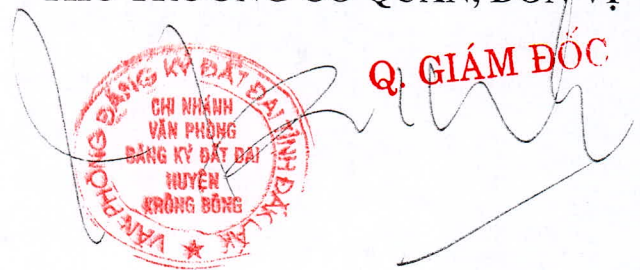 Q. GIÁM ĐỐC
VĂN PHÒNG ĐĂNG KÝ ĐẤT ĐAI TỈNH ĐẮK LẮK
CHI NHÁNH
VĂN PHÒNG
ĐĂNG KÝ ĐẤT ĐAI
HUYỆN
KRÔNG BÔNG